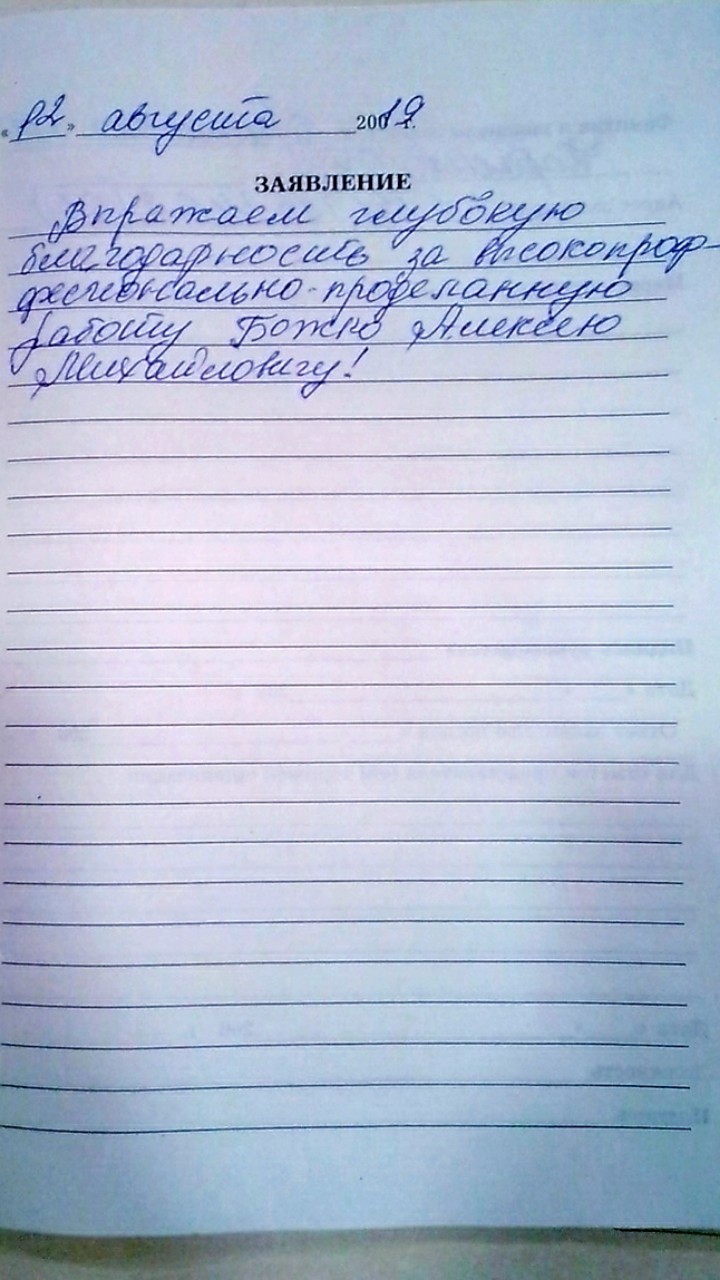 «02» августа 2019 г.
ЗАЯВЛЕНИЕ
Выражаем глубокую
благодарность за высокопроф-
фесионально-проделанную
работу Божко Алексею
Михайловичу!